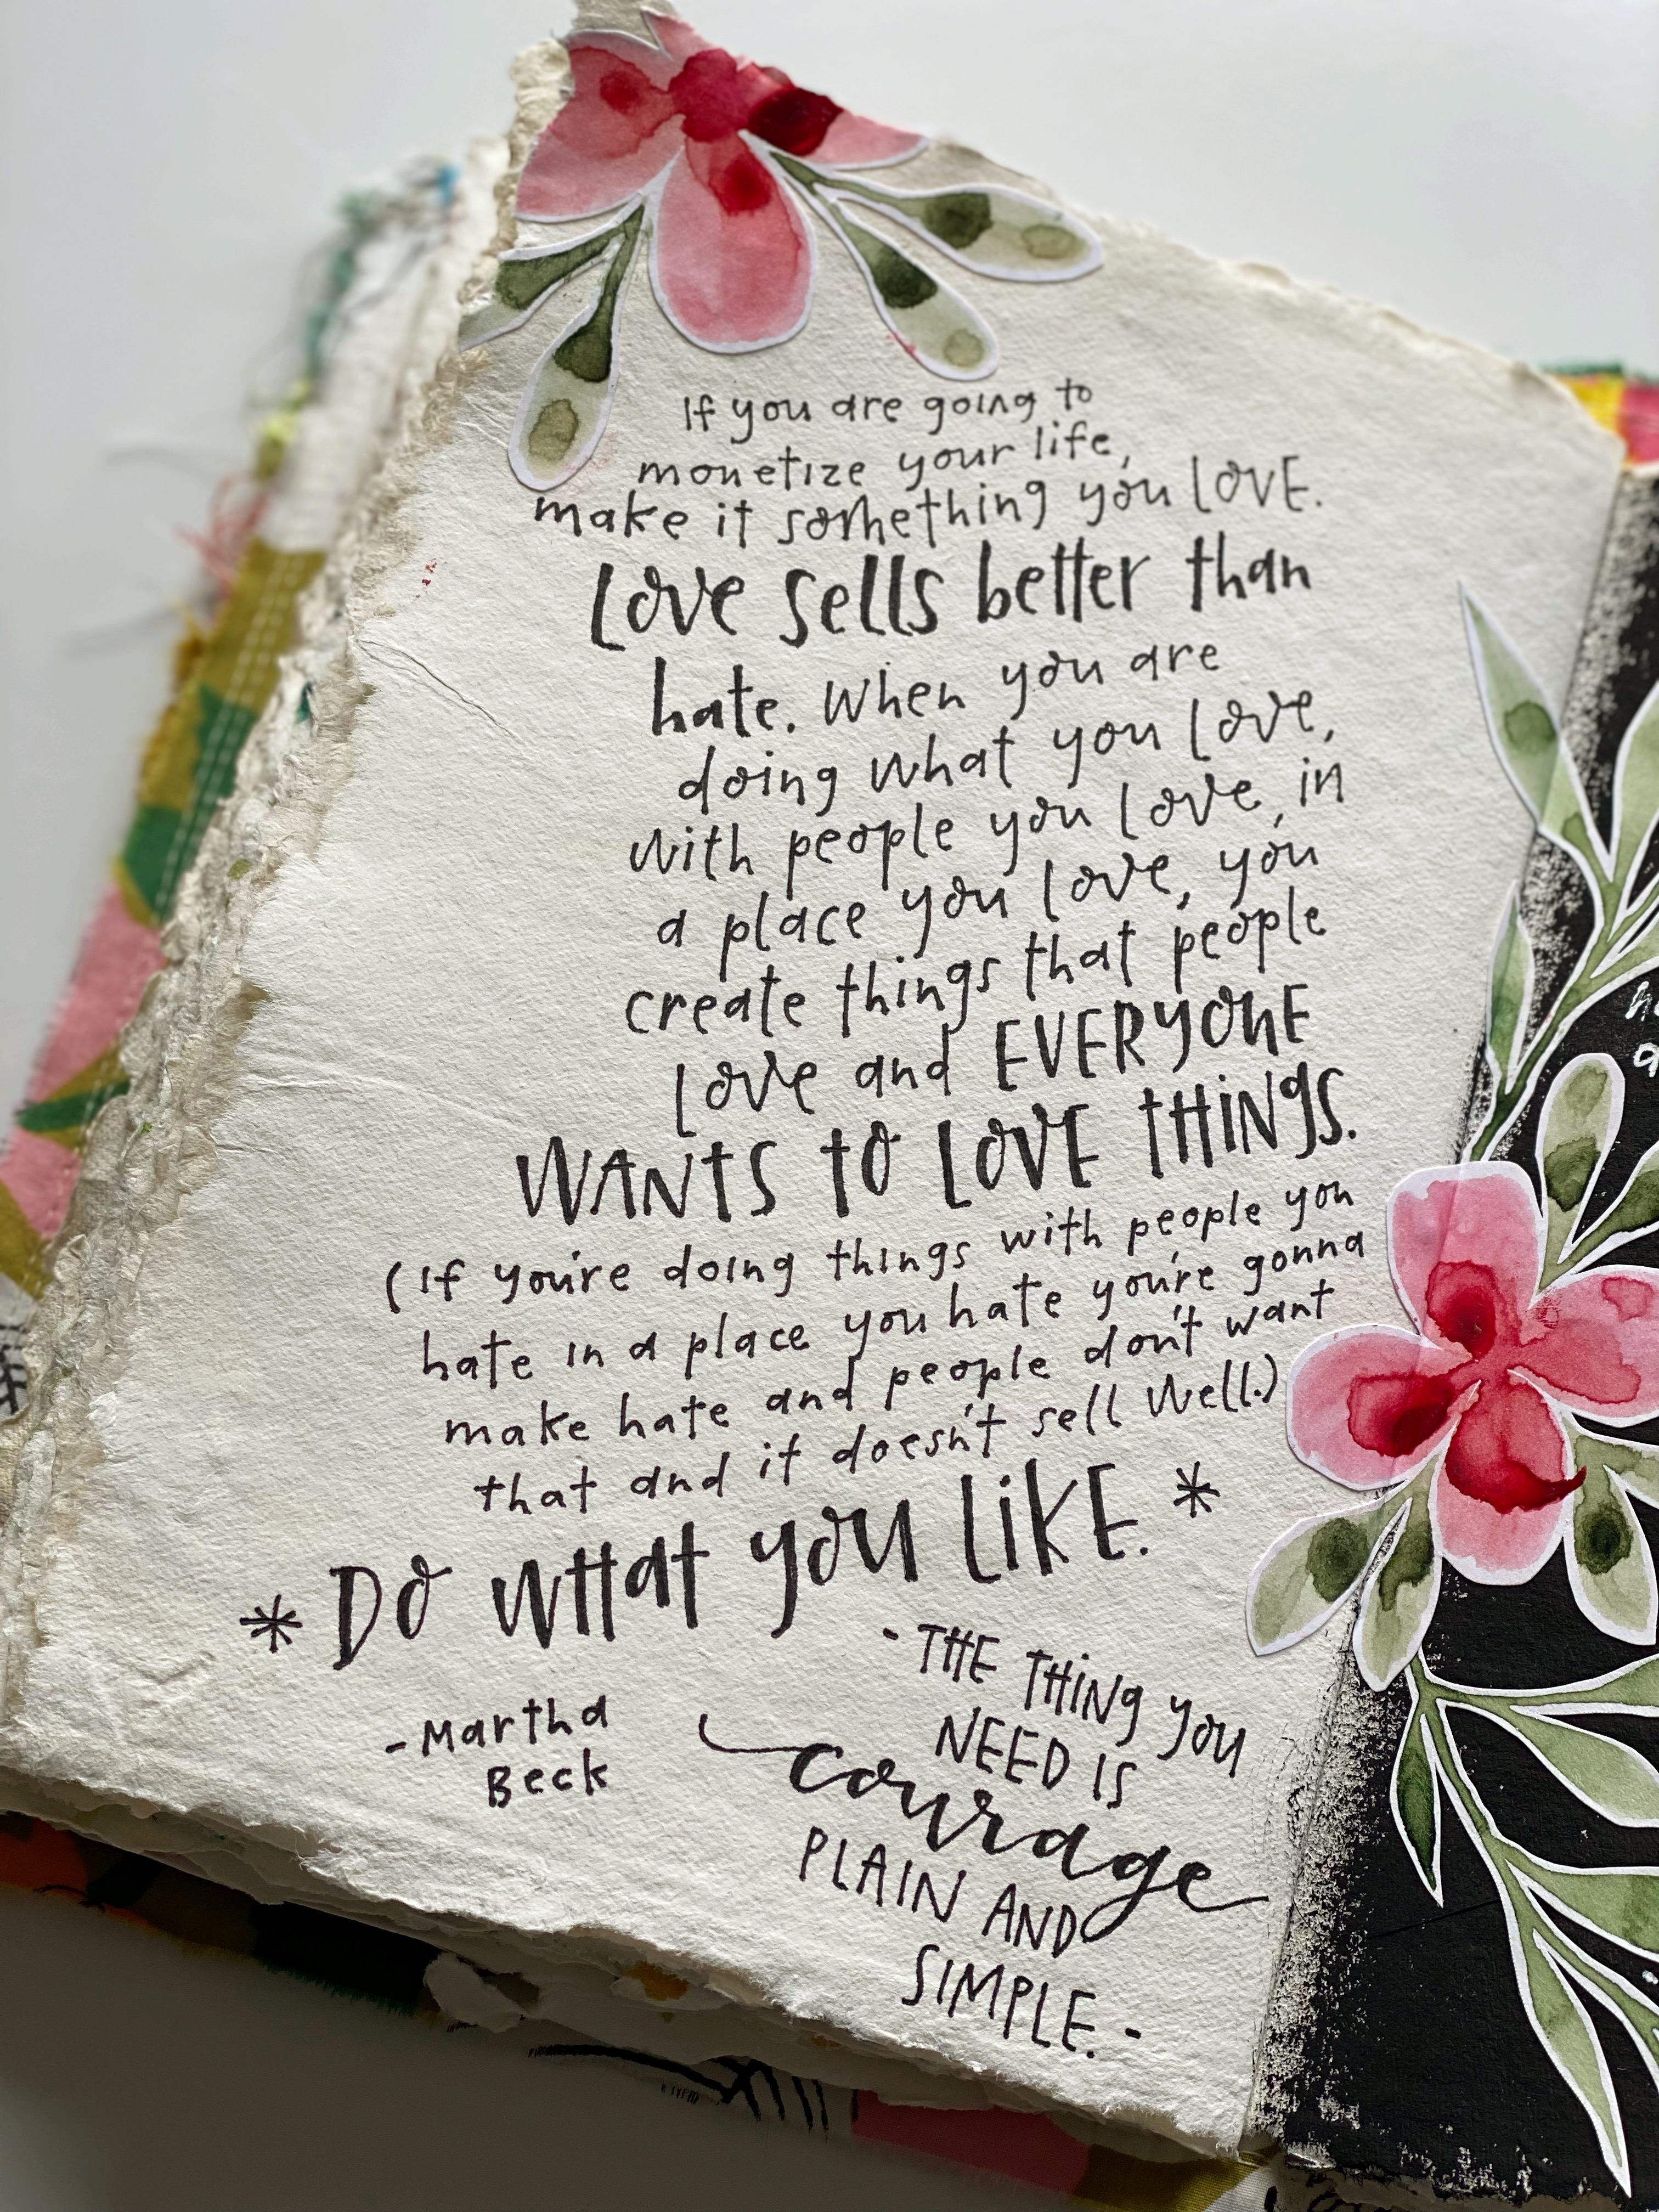 If you are going to
monetize your life,
make it something you LOVE.
Love sells better than
hate. When you are
doing what you love,
with people you love, in
a place you love, you
create things that people
love and EVERYONE
WANTS TO LOVE THINGS.
(If you're doing things with people you
hate in a place you hate you're gonna
make hate and people don't want
that and it doesn't sell well.)
*DO WHAT YOU LIKE.*
-Martha
Beck
-THE THING YOU
NEED IS
courage
PLAIN AND
SIMPLE.-